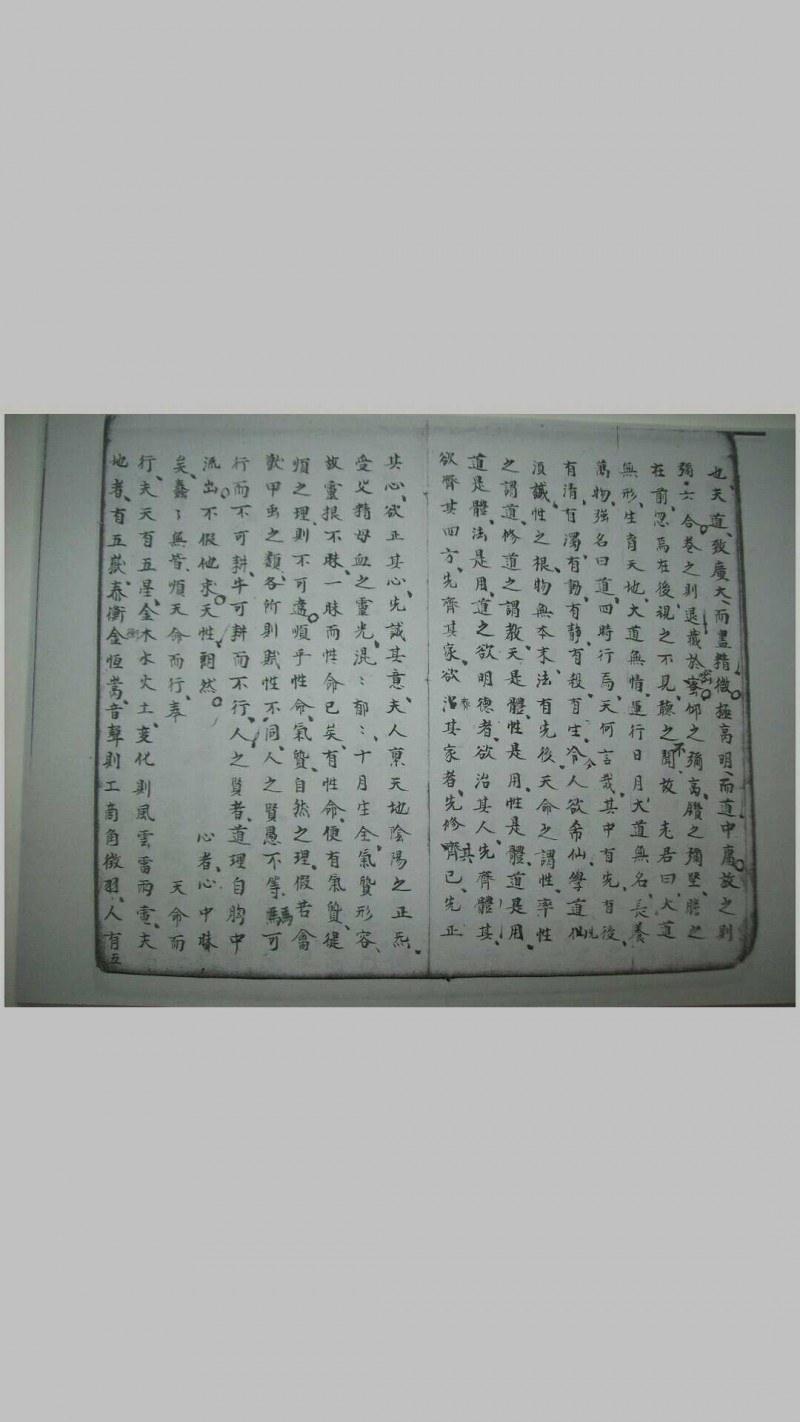 也、天道、致廣大、而盡精微、極高明、而道中庸、故之則
彌六合卷之則退藏於密仰之彌高鑽之彌堅瞻之
在前、忽焉在後、視之不見、聽之不聞、故 老君曰、大道
無形、生育天地、大道無情、運行日月、大道無名、長養
萬物、強名曰道、四時行焉、天何言哉、其中有先有後、
有清、有濁、有動、有静、有殺、有生、今人欲希仙、學道
須識性之根、物無本末、法有先後、天命之謂性、率性
之謂道、修道之謂教、天是體、性是用、性是體、道是用、
道是體、法是用、道之欲明德者、欲治其人、先齊體其、
欲齊其四方、先齊其家、欲治其家者、先修其已、先正
其心、欲正其心、先誠其意、夫人禀天地陰陽之正炁、
受父精母血之靈光、混〻郁〻、十月生全、氣質形容、
故靈根不昧、一昧而性命已矣、有性命、便有氣質、健
順之理、則不可違、順乎性命、氣質、自然之理、假若禽
獸甲虫之類、各所則賦性不同、人之賢愚不等、馬可
行而不可耕、牛可耕而不行、人之賢者、道理自胸中
流出、不假他求、天性朗然。 心者、心中昧
矣、蠢〻無皆、順天命而行、奉 天命而
行、夫天有五星、金木水火土、变化則風雲雷雨電、夫
地者、有五嶽、泰衡金恒嵩、音聲則工商角徵羽、人有五